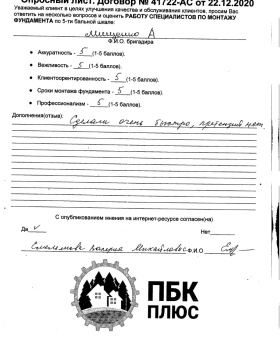 Опросный лист. Договор № 41722-АС от 22.12.2020
Уважаемый клиент в целях улучшения качества и обслуживания клиентов, просим Вас
ответить на несколько вопросов и оценить РАБОТУ СПЕЦИАЛИСТОВ ПО МОНТАЖУ
ФУНДАМЕНТА по 5-ти бальной шкале:
А
Ф.И.О. бригадира
• Аккуратность - 5 (1-5 баллов).
• Вежливость - 5 (1-5 баллов).
• Клиентоориентированность - 5 (1-5 баллов).
• Сроки монтажа фундамента - 5 (1-5 баллов).
• Профессионализм - 5 (1-5 баллов).
Дополнения(отзыв): Сделали очень быстро, претензий нет.
С опубликованием мнения на интернет-ресурсе согласен(на)
Да V Нет
Валерия Михайловна Ф.И.О
ПБК
ПЛЮС